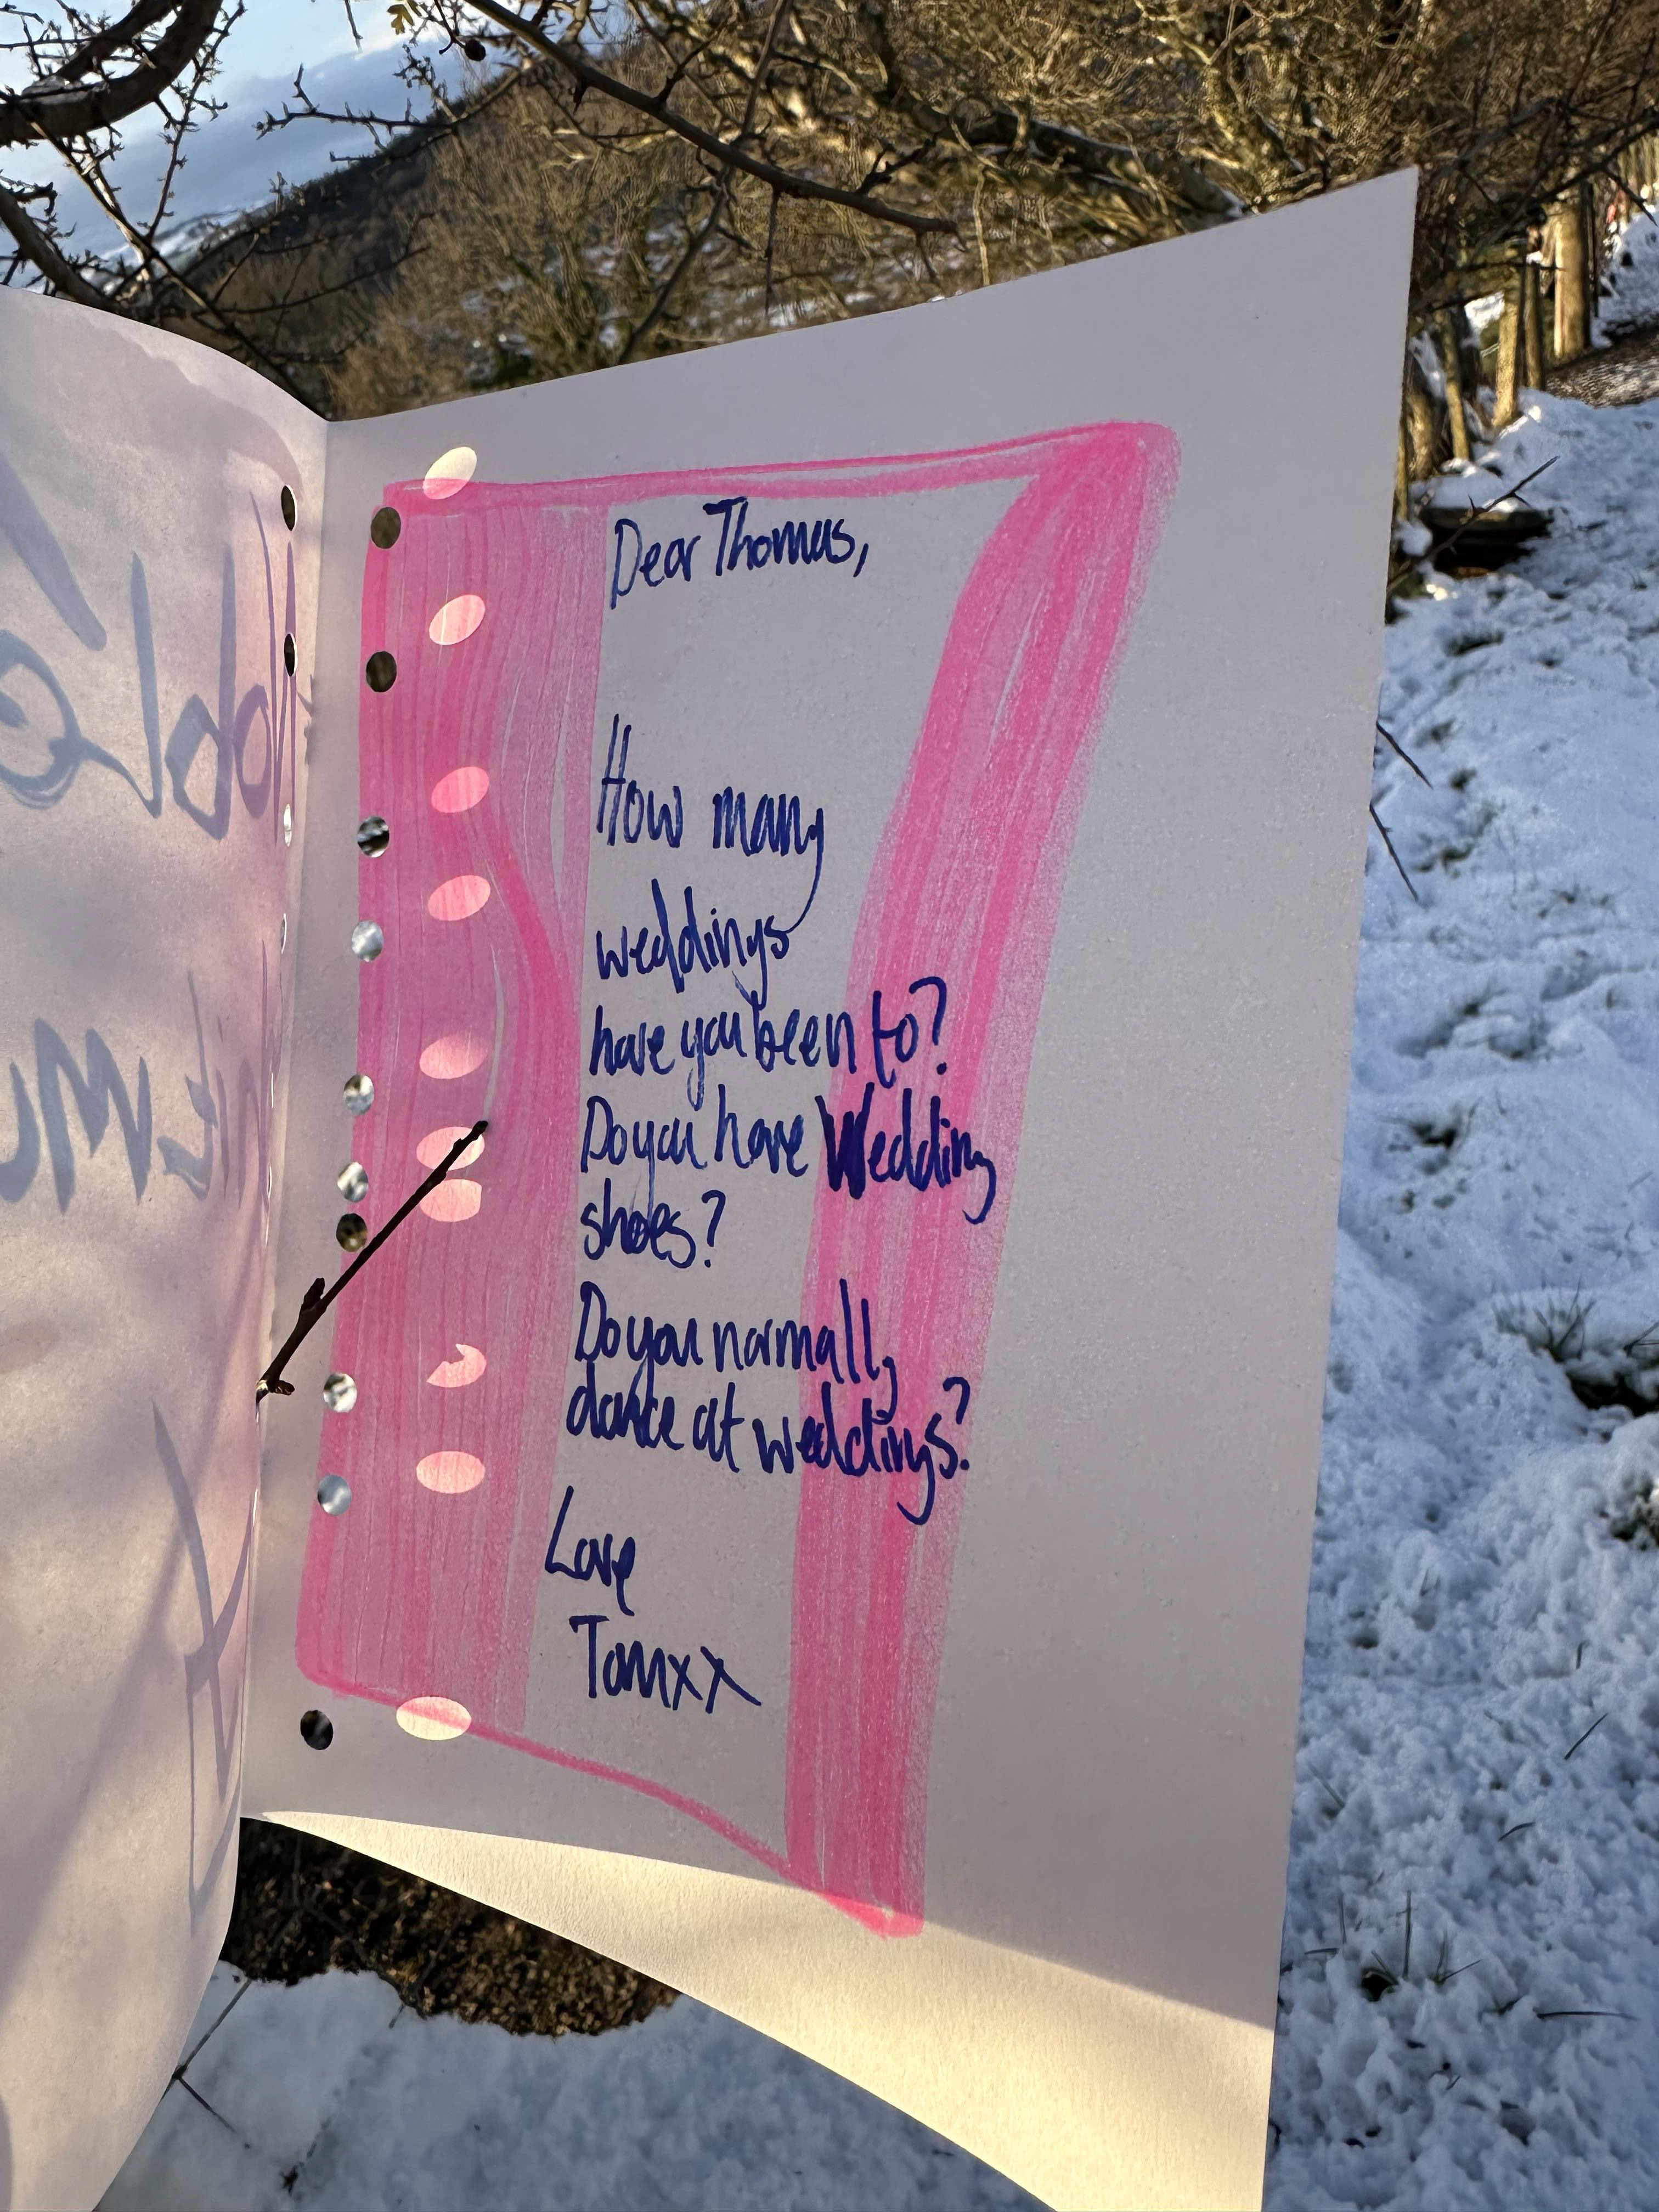 Dear Thomas,
How many
weddings
have you been to?
Do you have Wedding
shoes?
Do you normally
dance at weddings?
Love
Tomxx